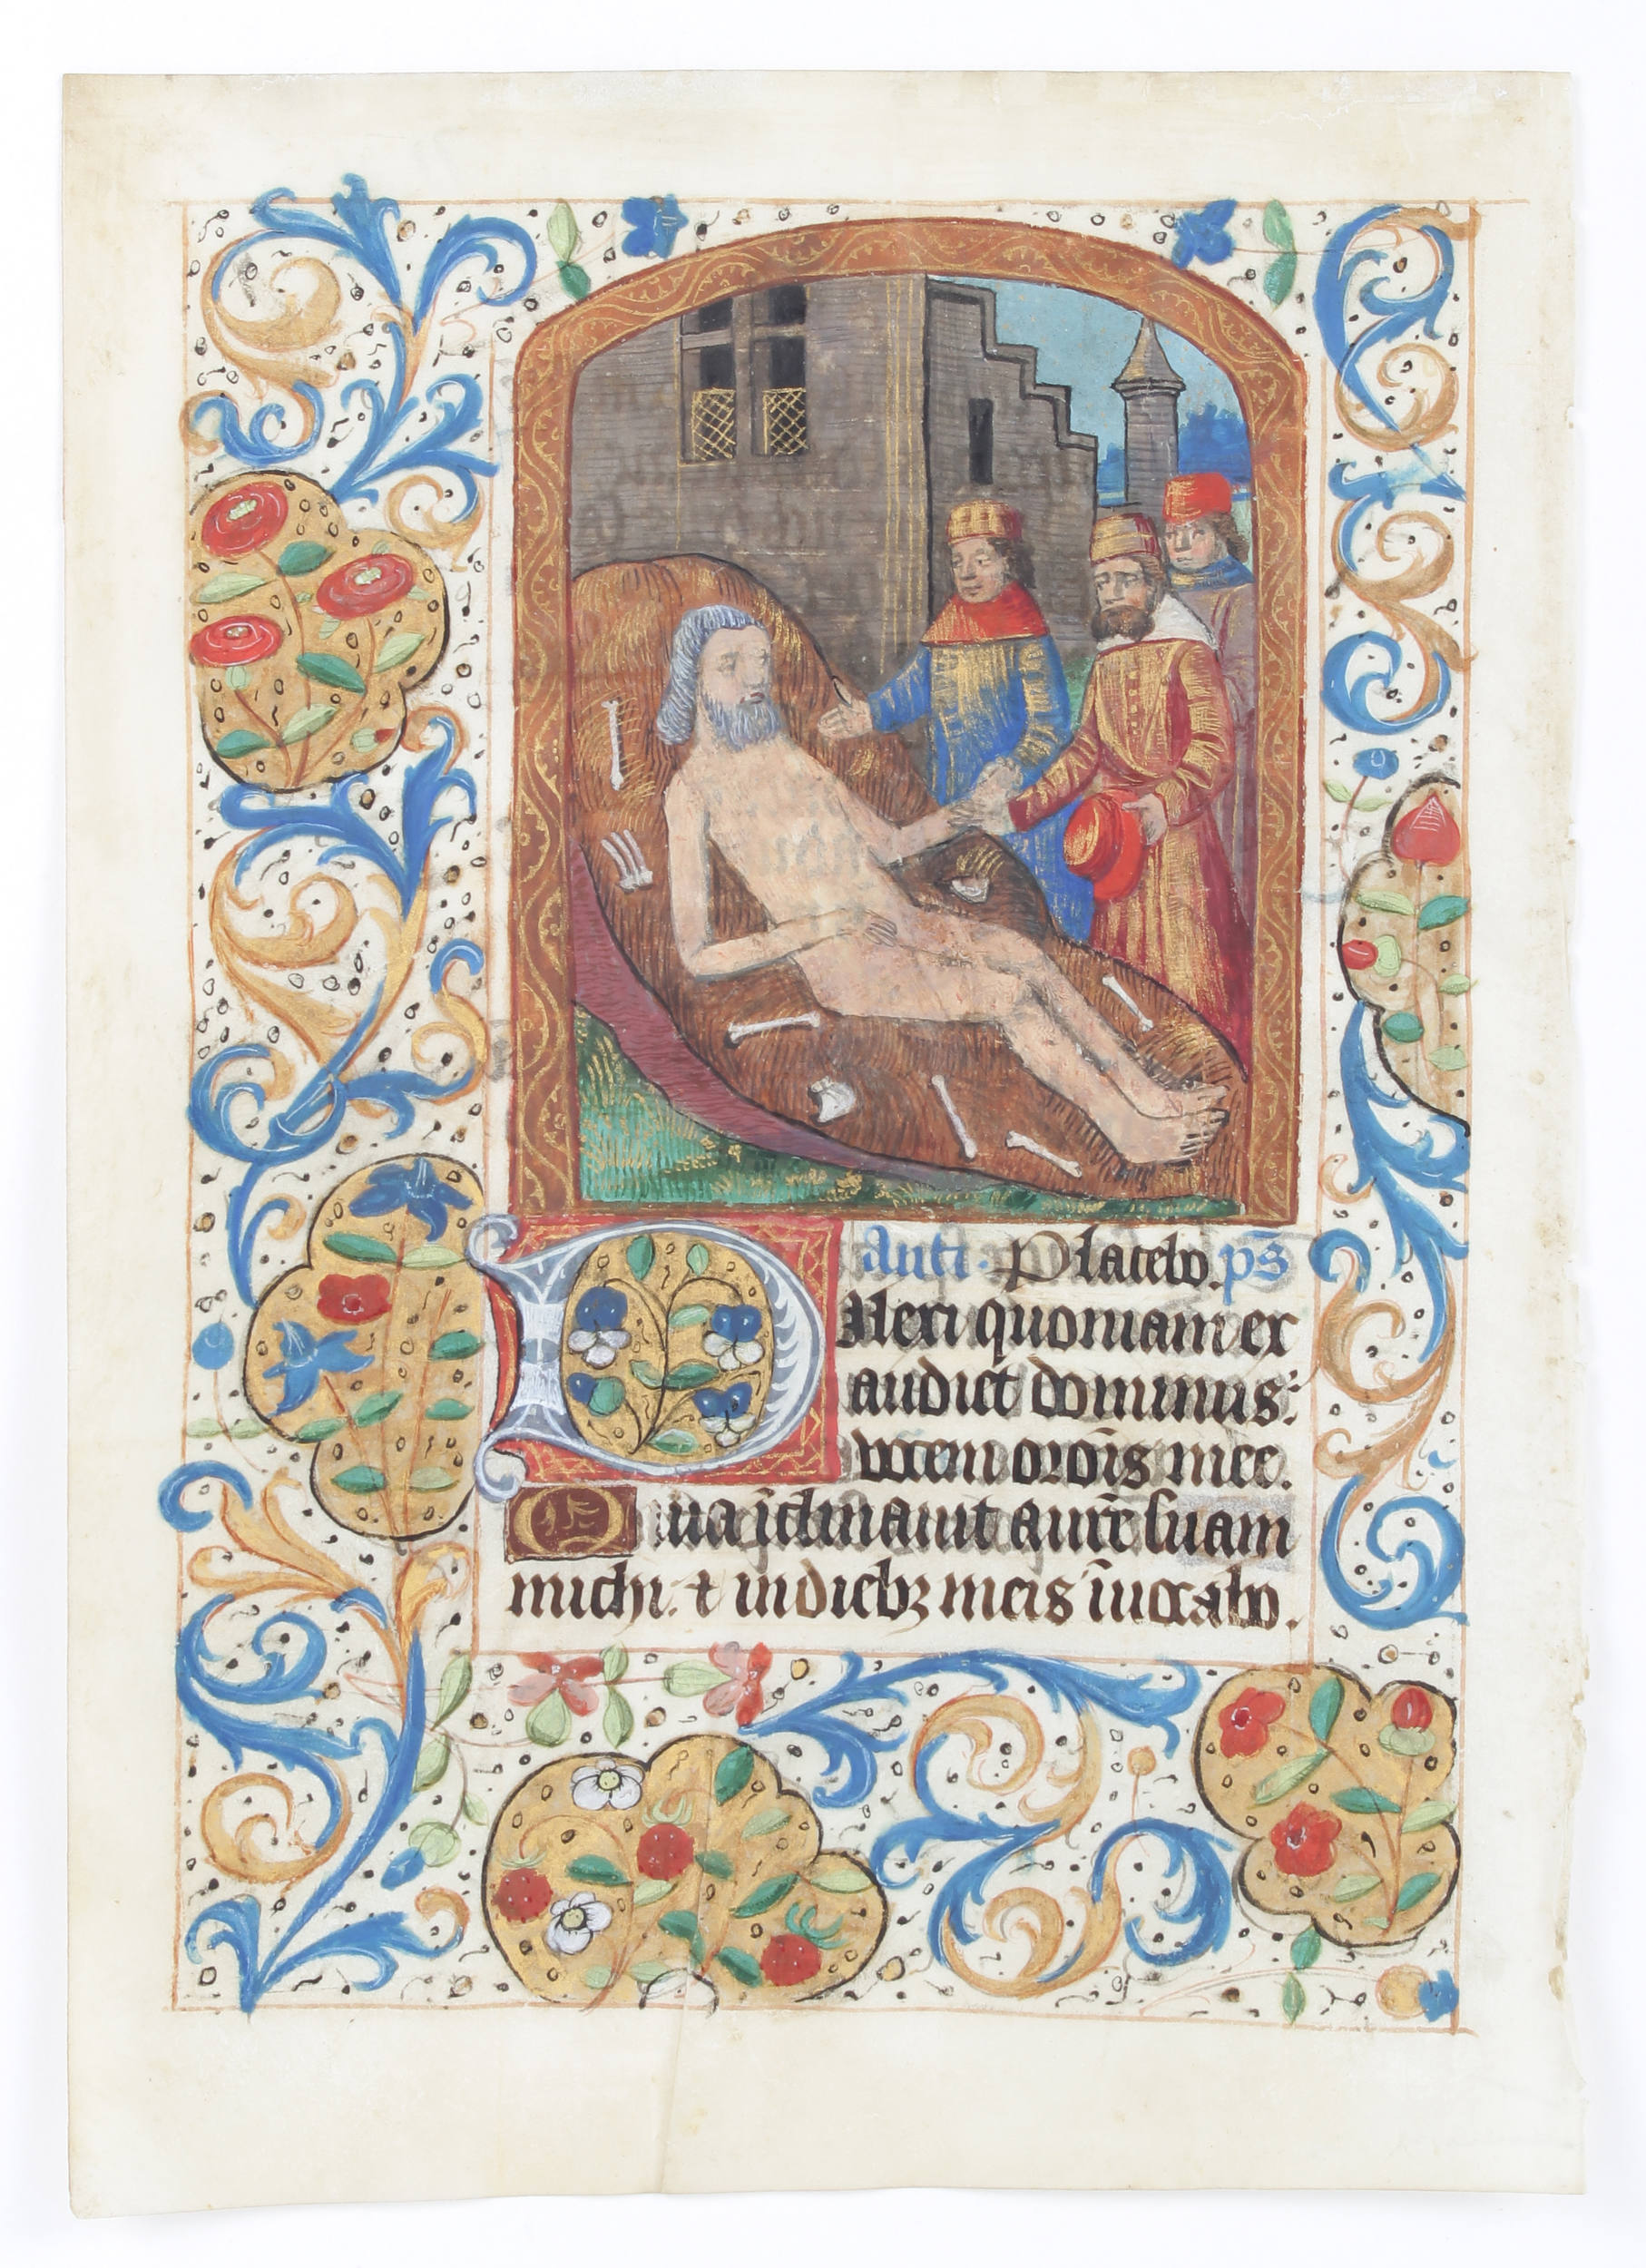 Anti. Placebo. p̄s
Dilexi quoniam ex
audiet dominus:
vocem orōis mee.
Quia īclinauit aurē suam
michi. ⁊ in diebꝫ meis īuocabo.